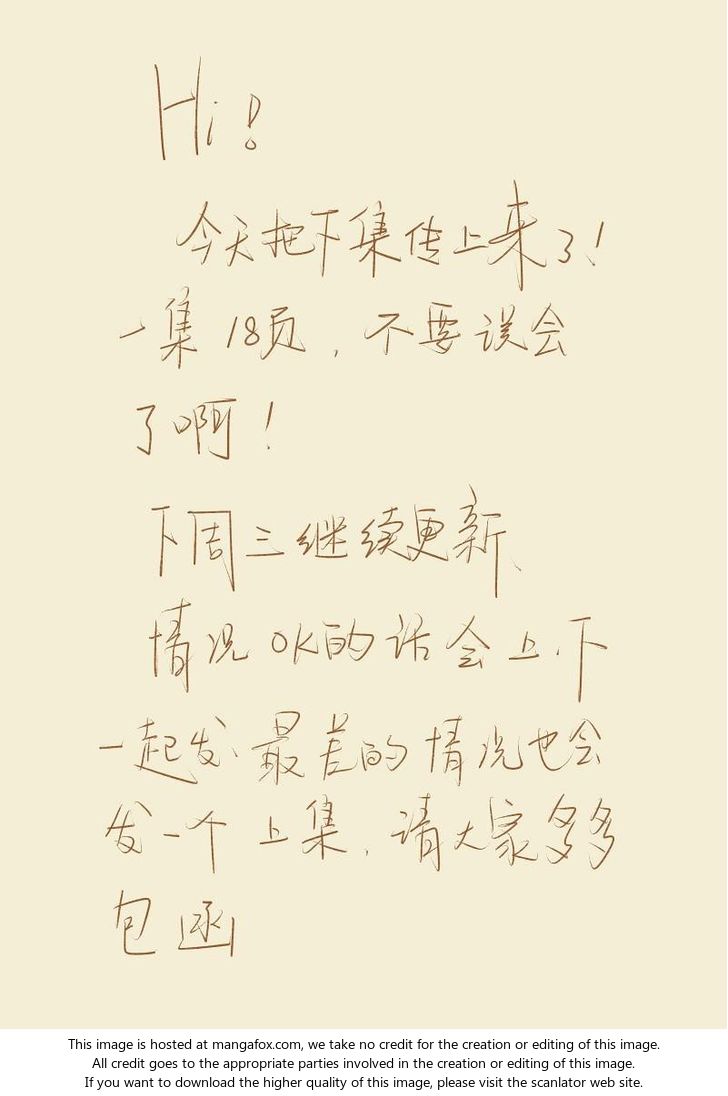 Hi!
今天把下集传上来了!
一集18页,不要误会
了啊!
下周三继续更新、
情况OK的话会上.下
一起发、最差的情况也会
发一个上集.请大家多多
包函
This image is hosted at mangafox.com, we take no credit for the creation or editing of this image.
All credit goes to the appropriate parties involved in the creation or editing of this image.
If you want to download the higher quality of this image, please visit the scanlator web site.